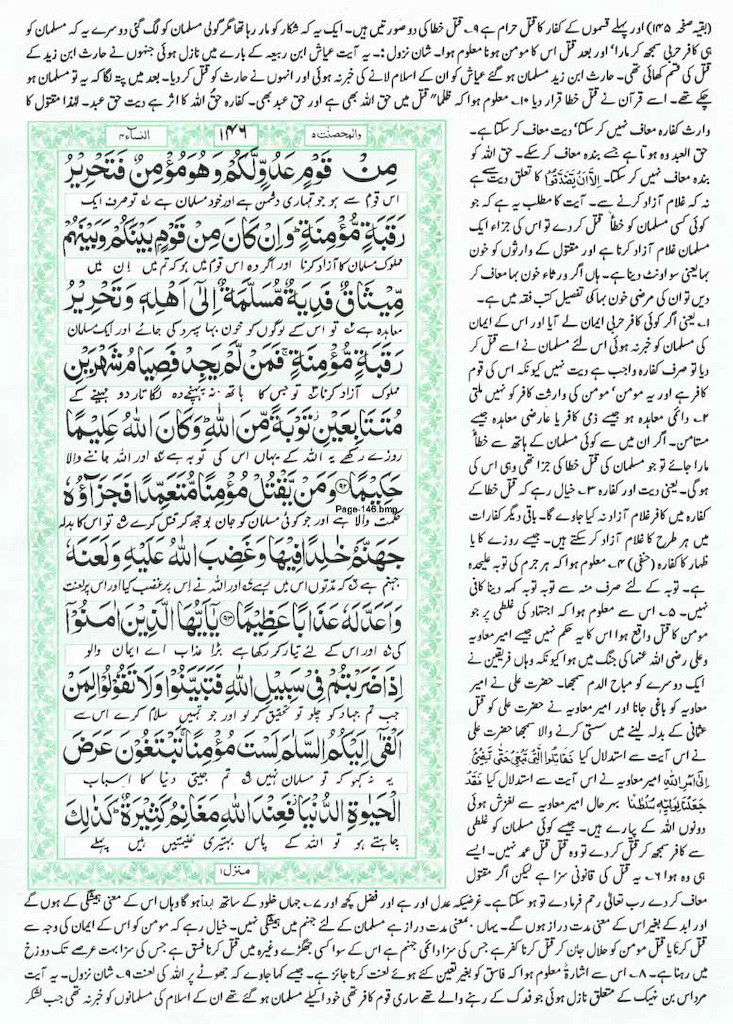 (بقیہ صفحہ ۱۴۵) اور پہلے قسموں کے کفار کا قتل حرام ہے ۹۔ قتل خطا کی دو صورتیں ہیں۔ ایک یہ کہ شکار کو مار رہا تھا مگر گولی مسلمان کو لگ گئی دوسرے یہ کہ مسلمان کو
ہی کافر حربی سمجھ کر مارا' اور بعد قتل اس کا مومن ہونا معلوم ہوا۔ شان نزول :۔ یہ آیت عیاش ابن ربیعہ کے بارے میں نازل ہوئی جنہوں نے حارث ابن زید کے
قتل کی قسم کھائی تھی۔ حارث ابن زید مسلمان ہو گئے عیاش کو ان کے اسلام لانے کی خبر نہ ہوئی اور انہوں نے حارث کو قتل کر دیا۔ بعد میں پتہ لگا کہ یہ تو مسلمان ہو
چکے تھے۔ اسے قرآن نے قتل خطا قرار دیا ۱۰۔ معلوم ہوا کہ ظلماً" قتل میں حق اللہ بھی ہے اور حق عبد بھی۔ کفارہ حق اللہ کا اثر ہے دیت حق عبد۔ لہٰذا مقتول کا
والمحصنت ۵
۱۴۶
النساء ۴
مِنْ قَوْمٍ عَدُوٍّ لَّكُمْ وَهُوَ مُؤْمِنٌ فَتَحْرِيْرُ
اس قوم سے ہو جو تمہاری دشمن ہے اور خود مسلمان ہے تو صرف ایک
رَقَبَةٍ مُّؤْمِنَةٍ وَاِنْ كَانَ مِنْ قَوْمٍۭ بَيْنَكُمْ وَبَيْنَهُمْ
مملوک مسلمان کا آزاد کرنا اور اگر وہ اس قوم میں ہو کہ تم میں ان میں
مِّيْثَاقٌ فَدِيَةٌ مُّسَلَّمَةٌ اِلٰٓى اَهْلِهٖ وَتَحْرِيْرُ
معاہدہ ہے تو اس کے لوگوں کو خون بہا سپرد کی جائے اور ایک مسلمان
رَقَبَةٍ مُّؤْمِنَةٍ فَمَنْ لَّمْ يَجِدْ فَصِيَامُ شَهْرَيْنِ
مملوک آزاد کرنا تو جس کا ہاتھ نہ پہنچے وہ لگاتار دو مہینے کے
مُتَتَابِعَيْنِ تَوْبَةً مِّنَ اللّٰهِ وَكَانَ اللّٰهُ عَلِيْمًا
روزے رکھے یہ اللہ کے یہاں اس کی توبہ ہے اور اللہ جاننے والا
حَكِيْمًا ۹۲ وَمَنْ يَّقْتُلْ مُؤْمِنًا مُّتَعَمِّدًا فَجَزَآؤُهٗ
Page-146.bmp
حکمت والا ہے اور جو کوئی مسلمان کو جان بوجھ کر قتل کرے تو اس کا بدلہ
جَهَنَّمُ خٰلِدًا فِيْهَا وَغَضِبَ اللّٰهُ عَلَيْهِ وَلَعَنَهٗ
جہنم ہے کہ مدتوں اس میں رہے اور اللہ نے اس پر غضب کیا اور اس پر لعنت
وَاَعَدَّ لَهٗ عَذَابًا عَظِيْمًا ۹۳ يٰٓاَيُّهَا الَّذِيْنَ اٰمَنُوْٓا
کی اور اس کے لئے تیار کر رکھا ہے بڑا عذاب اے ایمان والو
اِذَا ضَرَبْتُمْ فِيْ سَبِيْلِ اللّٰهِ فَتَبَيَّنُوْا وَلَا تَقُوْلُوْا لِمَنْ
جب تم جہاد کو چلو تو تحقیق کر لو اور جو تمہیں سلام کرے اس سے
اَلْقٰٓى اِلَيْكُمُ السَّلٰمَ لَسْتَ مُؤْمِنًا تَبْتَغُوْنَ عَرَضَ
یہ نہ کہو کہ تو مسلمان نہیں تم جیتی دنیا کا اسباب
الْحَيٰوةِ الدُّنْيَا فَعِنْدَ اللّٰهِ مَغَانِمُ كَثِيْرَةٌ كَذٰلِكَ
چاہتے ہو تو اللہ کے پاس بہتیری غنیمتیں ہیں پہلے
منزل ۱
وارث کفارہ معاف نہیں کر سکتا' دیت معاف کر سکتا ہے۔
حق العبد وہ ہوتا ہے جسے بندہ معاف کر سکے۔ حق اللہ کو
بندہ معاف نہیں کر سکتا۔ اِلَّآ اَنْ يَّصَّدَّقُوْا کا تعلق دیت سے ہے
نہ کہ غلام آزاد کرنے سے۔ آیت کا مطلب یہ ہے کہ جو
کوئی کسی مسلمان کو خطاً" قتل کر دے تو اس کی جزاء ایک
مسلمان غلام آزاد کرنا ہے اور مقتول کے وارثوں کو خون
بہا یعنی سو اونٹ دینا ہے۔ ہاں اگر ورثاء خون بہا معاف کر
دیں تو ان کی مرضی خون بہا کی تفصیل کتب فقہ میں ہے۔
۱۔ یعنی اگر کوئی کافر حربی ایمان لے آیا اور اس کے ایمان
کی مسلمان کو خبر نہ ہوئی اس لئے مسلمان نے اسے قتل کر
دیا تو صرف کفارہ واجب ہے دیت نہیں کیونکہ اس کی قوم
کافر ہے اور یہ مومن' مومن کی وارثت کافر کو نہیں ملتی
۲۔ دائمی معاہدہ ہو جیسے ذمی کافر یا عارضی معاہدہ جیسے
مستامن۔ اگر ان میں سے کوئی مسلمان کے ہاتھ سے خطاً"
مارا جائے تو جو مسلمان کی قتل خطا کی جزا تھی وہی اس کی
ہو گی۔ یعنی دیت اور کفارہ ۳۔ خیال رہے کہ قتل خطا کے
کفارہ میں کافر غلام آزاد نہ کیا جاوے گا۔ باقی دیگر کفارات
میں ہر طرح کا غلام آزاد کر سکتے ہیں۔ جیسے روزے کا یا
ظہار کا کفارہ (حنفی) ۴۔ معلوم ہوا کہ ہر جرم کی توبہ علیحدہ
ہے۔ توبہ کے لئے صرف منہ سے توبہ توبہ کہہ دینا کافی
نہیں۔ ۵۔ اس سے معلوم ہوا کہ اجتہاد کی غلطی پر جو
مومن کا قتل واقع ہوا اس کا یہ حکم نہیں جیسے امیر معاویہ
و علی رضی اللہ عنہما کی جنگ میں ہوا کیونکہ وہاں فریقین نے
ایک دوسرے کو مباح الدم سمجھا۔ حضرت علی نے امیر
معاویہ کو باغی جانا اور امیر معاویہ نے حضرت علی کو قتل
عثمانی کے بدلہ لینے میں سستی کرنے والا سمجھا حضرت علی
نے اس آیت سے استدلال کیا فَقَاتِلُوا الَّتِيْ تَبْغِيْ حَتّٰى تَفِيْٓءَ
اِلٰٓى اَمْرِ اللّٰهِ امیر معاویہ نے اس آیت سے استدلال کیا فَقَدْ
جَعَلْنَا لِوَلِيِّهٖ سُلْطٰنًا بہر حال امیر معاویہ سے لغزش ہوئی
دونوں اللہ کے پیارے ہیں۔ جیسے کوئی مسلمان کو غلطی
سے کافر سمجھ کر قتل کر دے تو وہ قتل قتل عمد نہیں۔ ایسے
ہی وہ ہوا ۶۔ یہ قتل کی قانونی سزا ہے لیکن اگر مقتول
معاف کر دے رب تعالٰی رحم فرما دے تو ہو سکتا ہے۔ غرضیکہ عدل اور ہے اور فضل کچھ اور ۷۔ جہاں خلود کے ساتھ ابداً ہو گا وہاں اس کے معنی ہمیشگی کے ہوں گے
اور ابد کے بغیر اس کے معنے مدت دراز ہوں گے۔ یہاں بمعنی مدت دراز ہے مسلمان کے لئے جہنم میں ہمیشگی نہیں۔ خیال رہے کہ مومن کو اس کے ایمان کی وجہ سے
قتل کرنا یا قتل مومن کو حلال جان کر قتل کرنا کفر ہے جس کی سزا دائمی جہنم ہے اس کے سوا کسی جھگڑے وغیرہ میں قتل کرنا فسق ہے جس کی سزا بہت عرصے تک دوزخ
میں رہنا ہے۔ ۸۔ اس سے اشارۃً معلوم ہوا کہ فاسق کو بغیر تعین کئے ہوئے لعنت کرنا جائز ہے۔ جیسے کہا جاوے کہ جھوٹے پر اللہ کی لعنت ۹۔ شان نزول۔ یہ آیت
مرداس بن نہیک کے متعلق نازل ہوئی جو فدک کے رہنے والے تھے ساری قوم کافر تھی خود اکیلے مسلمان ہو گئے تھے ان کے اسلام کی مسلمانوں کو خبر نہ تھی جب لشکر